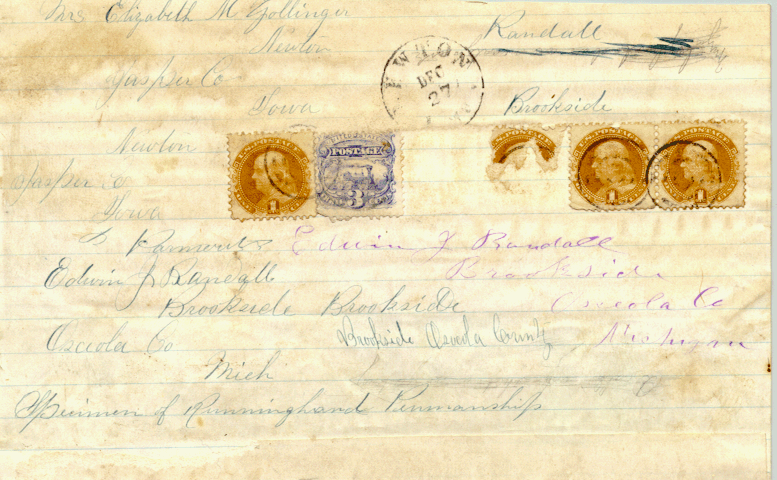 Mrs Elizabeth M Gollinger
Newton
Randall
Jasper Co
NEWTON
DEC
27
Iowa
Brookside
Newton
Jasper Co
Iowa
POSTAGE
1
POSTAGE
3
POSTAGE
U.S. POSTAGE
1
POSTAGE
1
Edwin J Randall
Edwin J Randall
Brookside
Brookside Brookside
Osceola Co
Osceola Co
Brookside Osceola County
Michigan
Mich
Specimen of Runninghand Penmanship